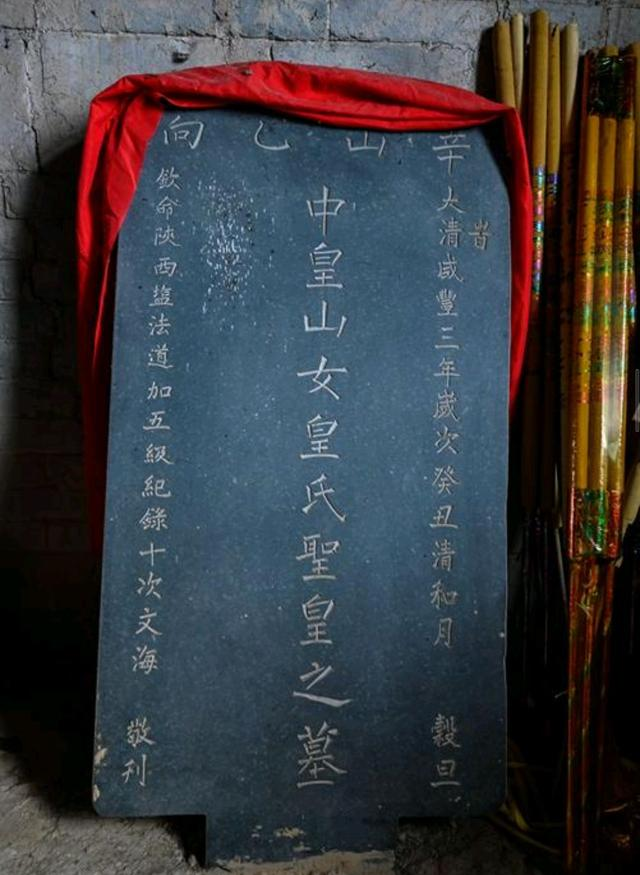 辛山乙向
旹
大清咸豐三年歲次癸丑清和月 穀旦
中皇山女皇氏聖皇之墓
欽命陝西盐法道加五級紀錄十次文海 敬刊